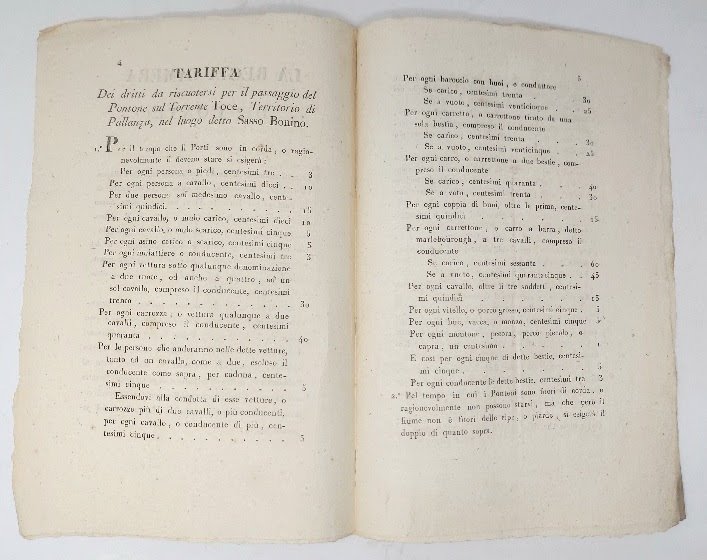 4
TARIFFA
Dei dritti da riscuotersi per il passaggio del
Pontone sul Torrente Toce, Territorio di
Pallanza, nel luogo detto Sasso Bonino.
1.° Per il tempo che li Porti sono in corda, o ragio-
nevolmente il devono stare si esigerà:
Per ogni persona a piedi, centesimi tre . . 3
Per ogni persona a cavallo, centesimi dieci . . 10
Per due persone sul medesimo cavallo, cente-
simi quindici. . . . . . . . 15
Per ogni cavallo, o mulo carico, centesimi dieci 10
Per ogni cavallo, o mulo scarico, centesimi cinque 5
Per ogni asino carico o scarico, centesimi cinque 5
Per ogni mulattiere o conducente, centesimi tre 3
Per ogni vettura sotto qualunque denominazione
a due ruote, ed anche a quattro, ad un
sol cavallo, compreso il conducente, centesimi
trenta . . . . . . . . . . 30
Per ogni carrozza, o vettura qualunque a due
cavalli, compreso il conducente, centesimi
quaranta . . . . . . . . . 40
Per le persone che anderanno nelle dette vetture,
tanto ad un cavallo, come a due, escluso il
conducente come sopra, per caduna, cente-
simi cinque . . . . . . . . 5
Essendovi alla condotta di esse vetture, o
carrozze più di due cavalli, o più conducenti,
per ogni cavallo, o conducente di più, cen-
tesimi cinque. . . . . . . . . 5
5
Per ogni baroccio con buoi, e conduttore
Se carico, centesimi trenta . . . . 30
Se a vuoto, centesimi venticinque . . 25
Per ogni carretta, o carrettone tirato da una
sola bestia, compreso il conducente
Se carico, centesimi trenta . . . . 30
Se a vuoto, centesimi venticinque . . 25
Per ogni carro, o carrettone a due bestie, com-
preso il conducente
Se carico, centesimi quaranta . . . 40
Se a voto, centesimi trenta . . . . 30
Per ogni coppia di buoi, oltre la prima, cente-
simi quindici . . . . . . . 15
Per ogni carrettone, o carro a barra, detto
marlebourough, a tre cavalli, compreso il
conducente
Se carico, centesimi sessanta . . . 60
Se a vuoto, centesimi quarantacinque . . 45
Per ogni cavallo, oltre li tre suddetti, centesi-
mi quindici . . . . . . . . 15
Per ogni vitello, o porco grosso, centesimi cinque
Per ogni bue, vacca, o manzo, centesimi cinque
Per ogni montone, pecora, porco piccolo, o
capra, un centesimo . . . . . . 1
E così per ogni cinque di dette bestie, centesi-
mi cinque. . . . . . . . . 5
Per ogni conducente le dette bestie, centesimi tre 3
2.° Pel tempo in cui i Pontoni sono fuori di corda, o
ragionevolmente non possono starsi, ma che però il
fiume non è fuori delle ripe, o piarde, si esigerà il
doppio di quanto sopra.